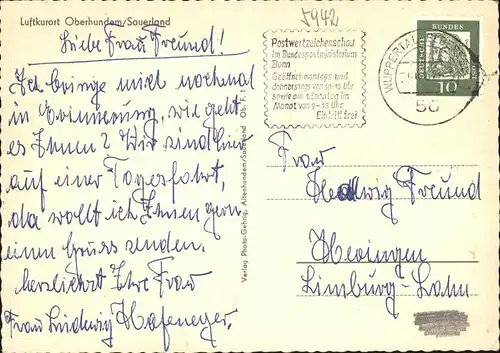 Luftkurort Oberhundem/Sauerland
Liebe Frau Freund!
Ich bringe mich nochmal
in Erinnerung, wie geht
es Ihnen? Wir sind hier
auf einer Tagesfahrt,
da wollt ich Ihnen gern
einen Gruss senden.
Herzlichst Ihre Frau
Frau Ludwig Hafeneger.
Verlag Photo-Gehrig, Altenhundem/Sauerland Ob. F. 1
5942
Postwertzeichenschau
im Bundespostministerium
Bonn
Geöffnet montags und
donnerstags von 10-15 Uhr
sowie am 1. Sonntag im
Monat von 9-13 Uhr
Eintritt frei
WUPPERTAL
56
DEUTSCHE BUNDESPOST
10
Frau
Hedwig Freund
Hevingen
Limburg-Lahn